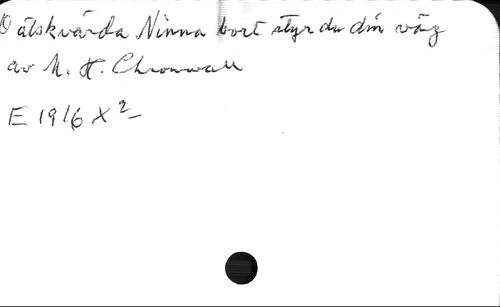 O älskvärda Ninna bort styr du din väg
av M. H. Chronwall
E 1916 X 2-